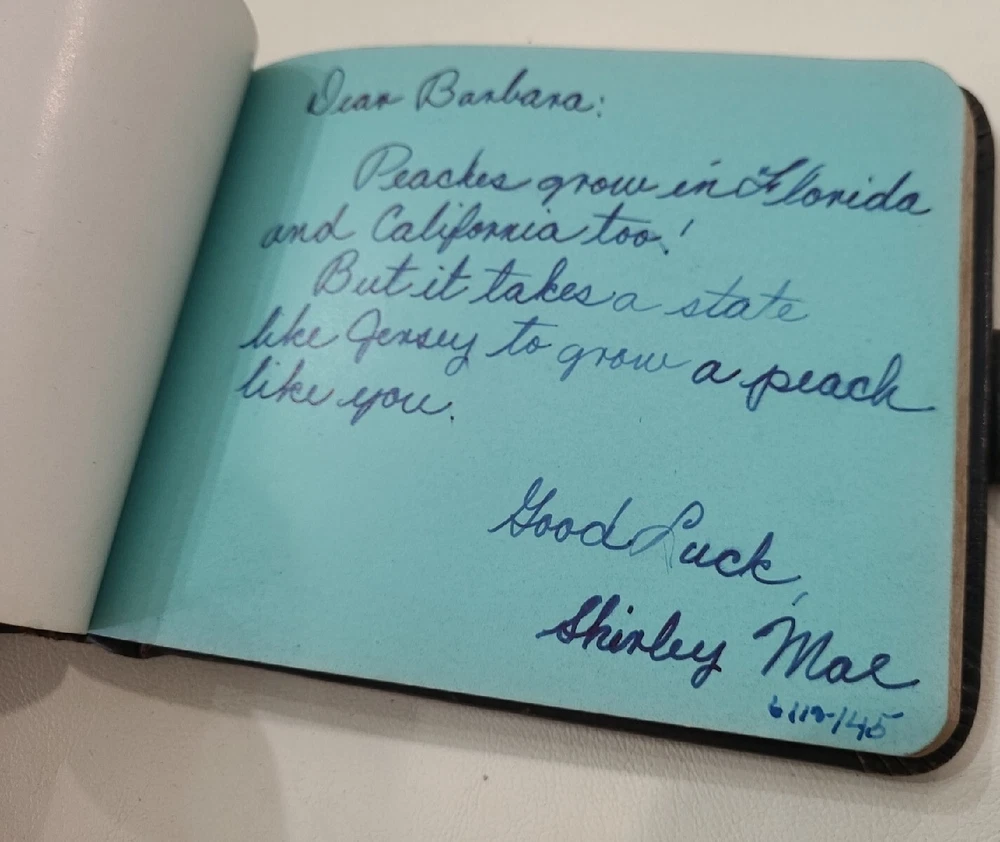 Dear Barbara:
Peaches grow in Florida
and California too!
But it takes a state
like Jersey to grow a peach
like you.
Good Luck,
Shirley Mae